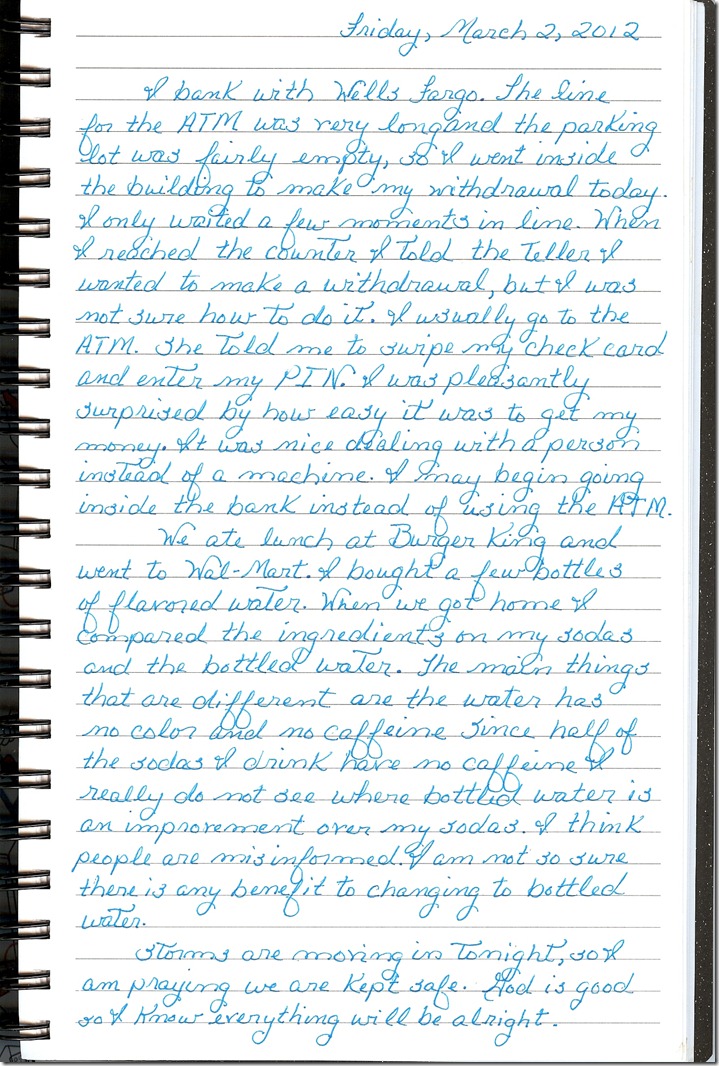 Friday, March 2, 2012
I bank with Wells Fargo. The line
for the ATM was very long and the parking
lot was fairly empty, so I went inside
the building to make my withdrawal today.
I only waited a few moments in line. When
I reached the counter I told the teller I
wanted to make a withdrawal, but I was
not sure how to do it. I usually go to the
ATM. She told me to swipe my check card
and enter my PIN. I was pleasantly
surprised by how easy it was to get my
money. It was nice dealing with a person
instead of a machine. I may begin going
inside the bank instead of using the ATM.
We ate lunch at Burger King and
went to Wal-Mart. I bought a few bottles
of flavored water. When we got home I
compared the ingredients on my sodas
and the bottled water. The main things
that are different are the water has
no color and no caffeine since half of
the sodas I drink have no caffeine I
really do not see where bottled water is
an improvement over my sodas. I think
people are misinformed. I am not so sure
there is any benefit to changing to bottled
water.
Storms are moving in tonight, so I
am praying we are kept safe. God is good
so I know everything will be alright.